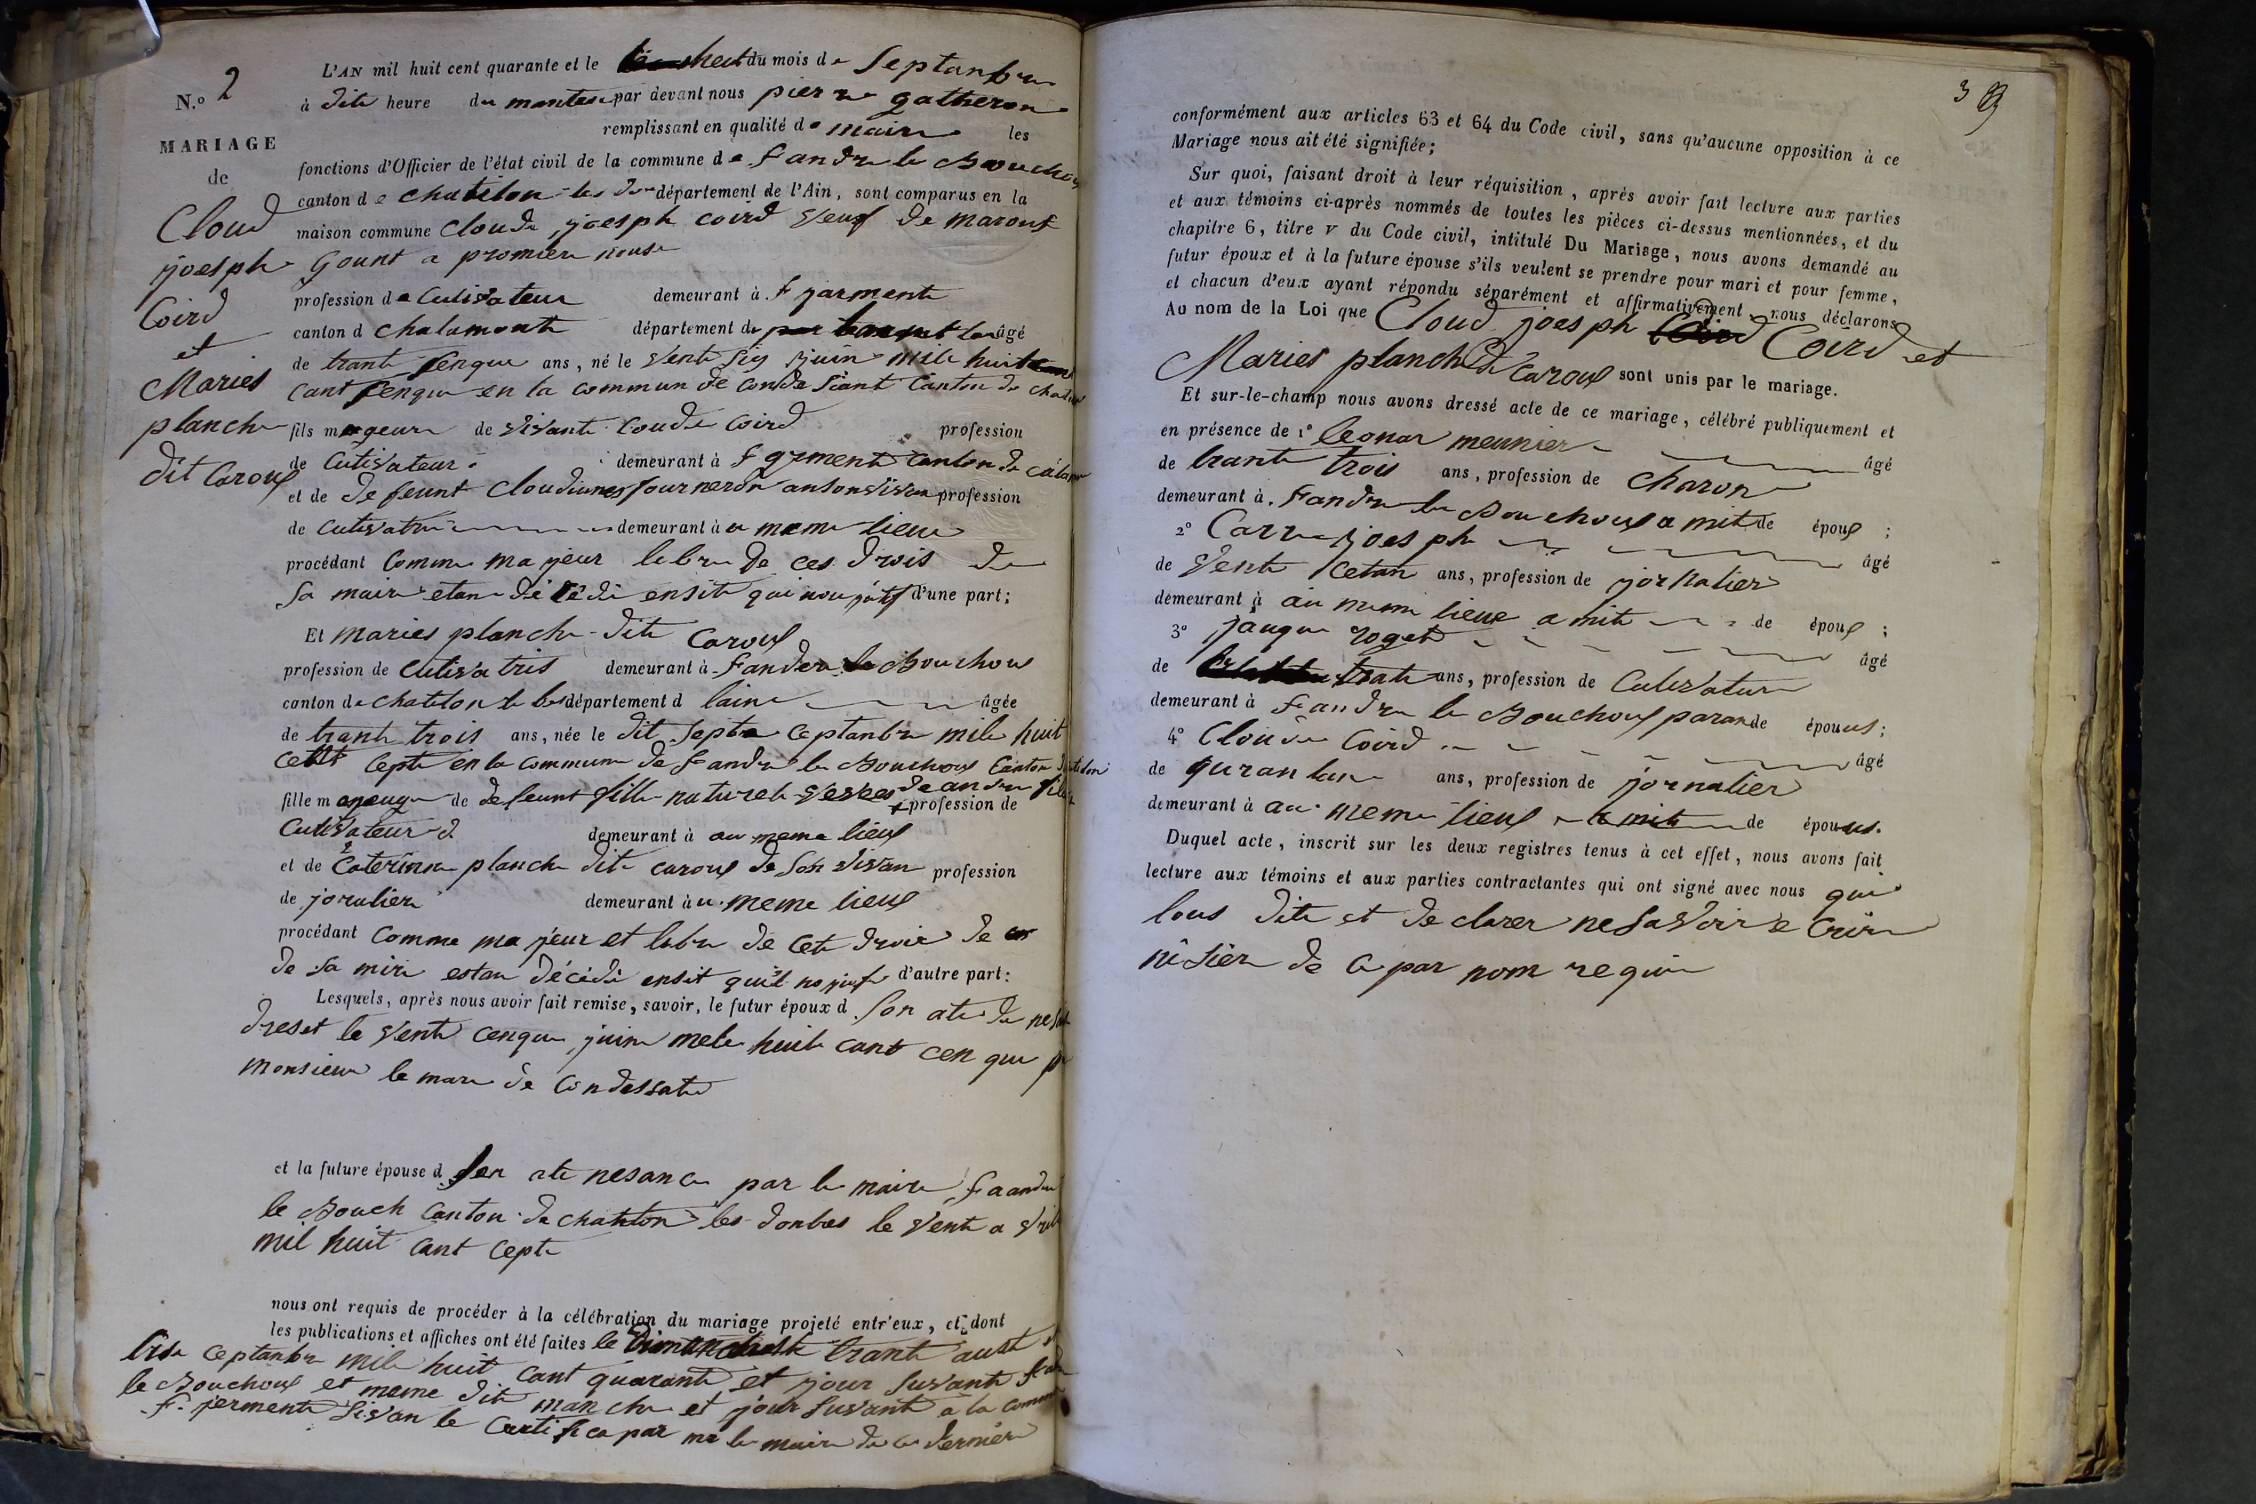 N.º 2
MARIAGE
de
Cloud
joesph
Coird
et
Maries
planche
dit Caroux
L'AN mil huit cent quarante et le huit du mois de Septanbre
à dite heure du mantes par devant nous pierre gatheron
remplissant en qualité de maire les
fonctions d'Officier de l'état civil de la commune de St andre le Bouchou
canton de chatilon les don département de l'Ain, sont comparus en la
maison commune Cloude joesph coird veuf de
a promiere nouse
profession de Cultivateur demeurant à St jarmente
canton d chalamonte département de âgé
de trante senque ans, né le vente juin mile huit
cant senque en la commun de condesiant Canton de
fils mageure de vivante Coude Coird profession
de Cutivateur demeurant à St germente Canton de
et de defeunt Cloudine fourneron profession
de cutivatri demeurant à au meme lieu
procédant Comme majeur libre de ces drois de
sa maire etan dé cédi ensite qui d'une part;
Et maries planche dite Caroux
profession de Cutivatris demeurant à St andre le Bouchou
canton de chatilon le département d laine âgée
de trante trois ans, née le dit septe Ceptanbre mile huit
cent cepte en la commune de St andre le Bouchoux Canton
fille majeuge de defeunt fille naturele de andre profession de
Cutivateur d demeurant à au meme lieux
et de Caterinne planche dite caroux de son vivan profession
de jornalier demeurant à u meme lieux
procédant Comme majeur et libre de cete drois de
de sa mire estan décédé ensit qu'il no d'autre part:
Lesquels, après nous avoir fait remise, savoir, le futur époux d son ate de
dreset le vente cenque juin mele huit cant cen que
monsieur le mare de Condessate
et la future épouse d son ate nesance par le maire St andre
le Bouch Canton de chatilon les donbes le vente a vril
mil huit cant cepte
nous ont requis de procéder à la célébration du mariage projeté entr'eux, et dont
les publications et affiches ont été faites le trante aust
Ceptanbre mile huit cant quarante et jour suvante
le Bouchoux et meme dite manche et jour suvante a la
St jermente sivan le Certifica par mr le maire de la dernier
39
conformément aux articles 63 et 64 du Code civil, sans qu'aucune opposition à ce
Mariage nous ait été signifiée;
Sur quoi, faisant droit à leur réquisition, après avoir fait lecture aux parties
et aux témoins ci-après nommés de toutes les pièces ci-dessus mentionnées, et du
chapitre 6, titre v du Code civil, intitulé Du Mariage, nous avons demandé au
futur époux et à la future épouse s'ils veulent se prendre pour mari et pour femme,
et chacun d'eux ayant répondu séparément et affirmativement, nous déclarons
Au nom de la Loi que Cloud joesph Coird et
Maries planche dit Caroux sont unis par le mariage.
Et sur-le-champ nous avons dressé acte de ce mariage, célébré publiquement et
en présence de 1º leonar meunier âgé
de trante trois ans, profession de charon
demeurant à St andre le Bouchoux a mit de époux;
2º Carre joesph âgé
de vente cetan ans, profession de jornalier
demeurant à au meme lieux a mit de époux;
3º jauque roget âgé
de trate ans, profession de Cutivature
demeurant à St andre le Bouchoux paran de épouus;
4º Cloude Coird âgé
de quran ans, profession de jornalier
demeurant à au meme lieux a mit de épouus.
Duquel acte, inscrit sur les deux registres tenus à cet effet, nous avons fait
lecture aux témoins et aux parties contractantes qui ont signé avec nous qui
tous dite et de clarer ne savoir e Crire
ni sier de ce par nom requi